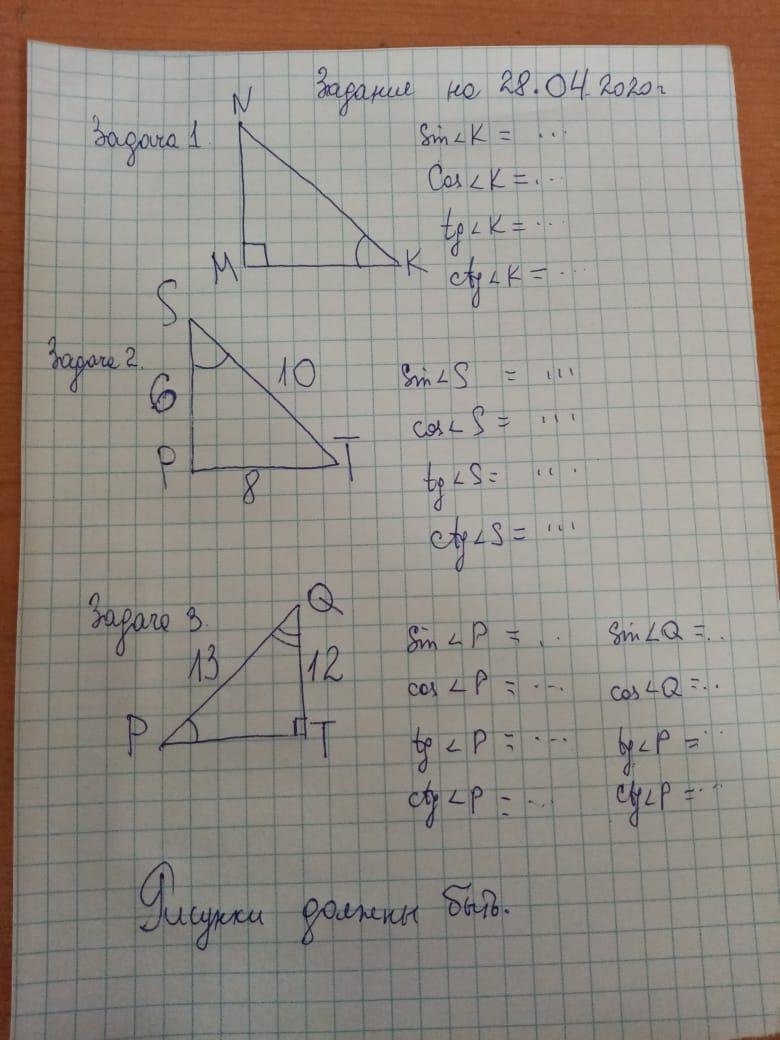 Задания на 28.04.2020г
Задача 1.
N
M
K
sin∠K = ...
Cos∠K = ...
tg∠K = ...
ctg∠K = ...
Задача 2.
S
6
10
P
8
T
sin∠S = ...
cos∠S = ...
tg∠S = ...
ctg∠S = ...
Задача 3.
Q
13
12
P
T
sin∠P = .. sin∠Q = ..
cos∠P = ... cos∠Q = ..
tg∠P = ... tg∠P = ..
ctg∠P = ... ctg∠P = ...
Рисунки должны быть.